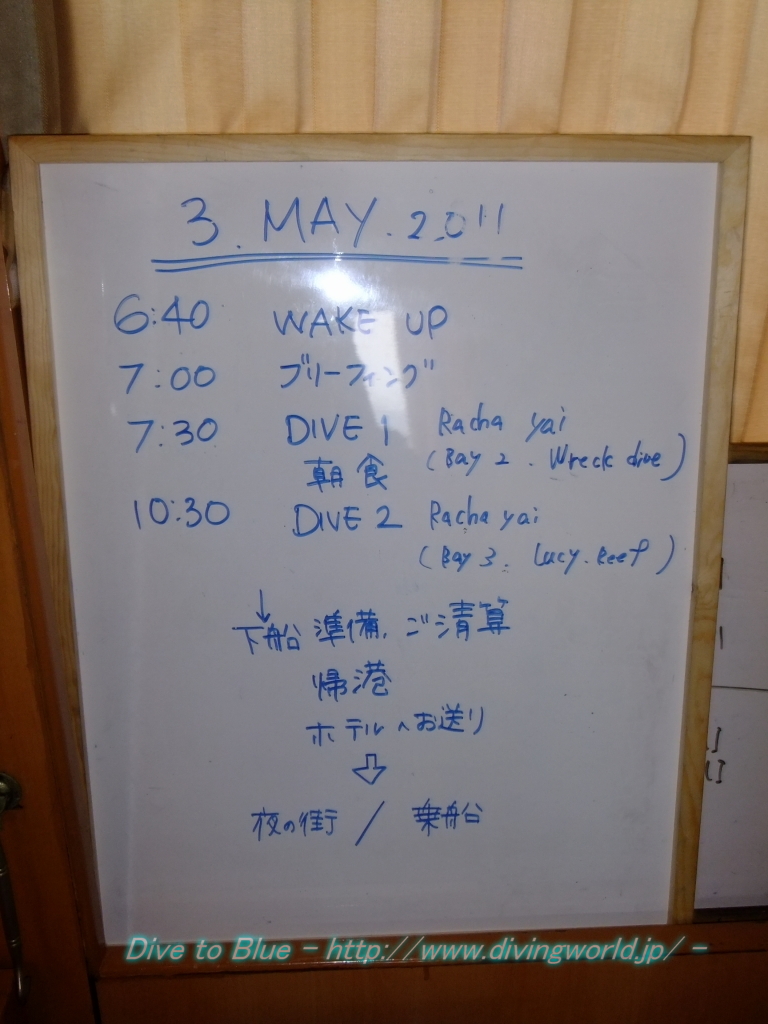 3. MAY. 2.011
6:40 WAKE UP
7:00 ブリーフィング
7:30 DIVE 1 Racha yai
(Bay 2. Wreck dive)
朝食
10:30 DIVE 2 Racha yai
(Bay 3. Lucy. Reef)
↓
下船準備、ご清算
帰港
ホテルへお送り
⇩
夜の街 / 乗船
Dive to Blue - http://www.divingworld.jp/ -